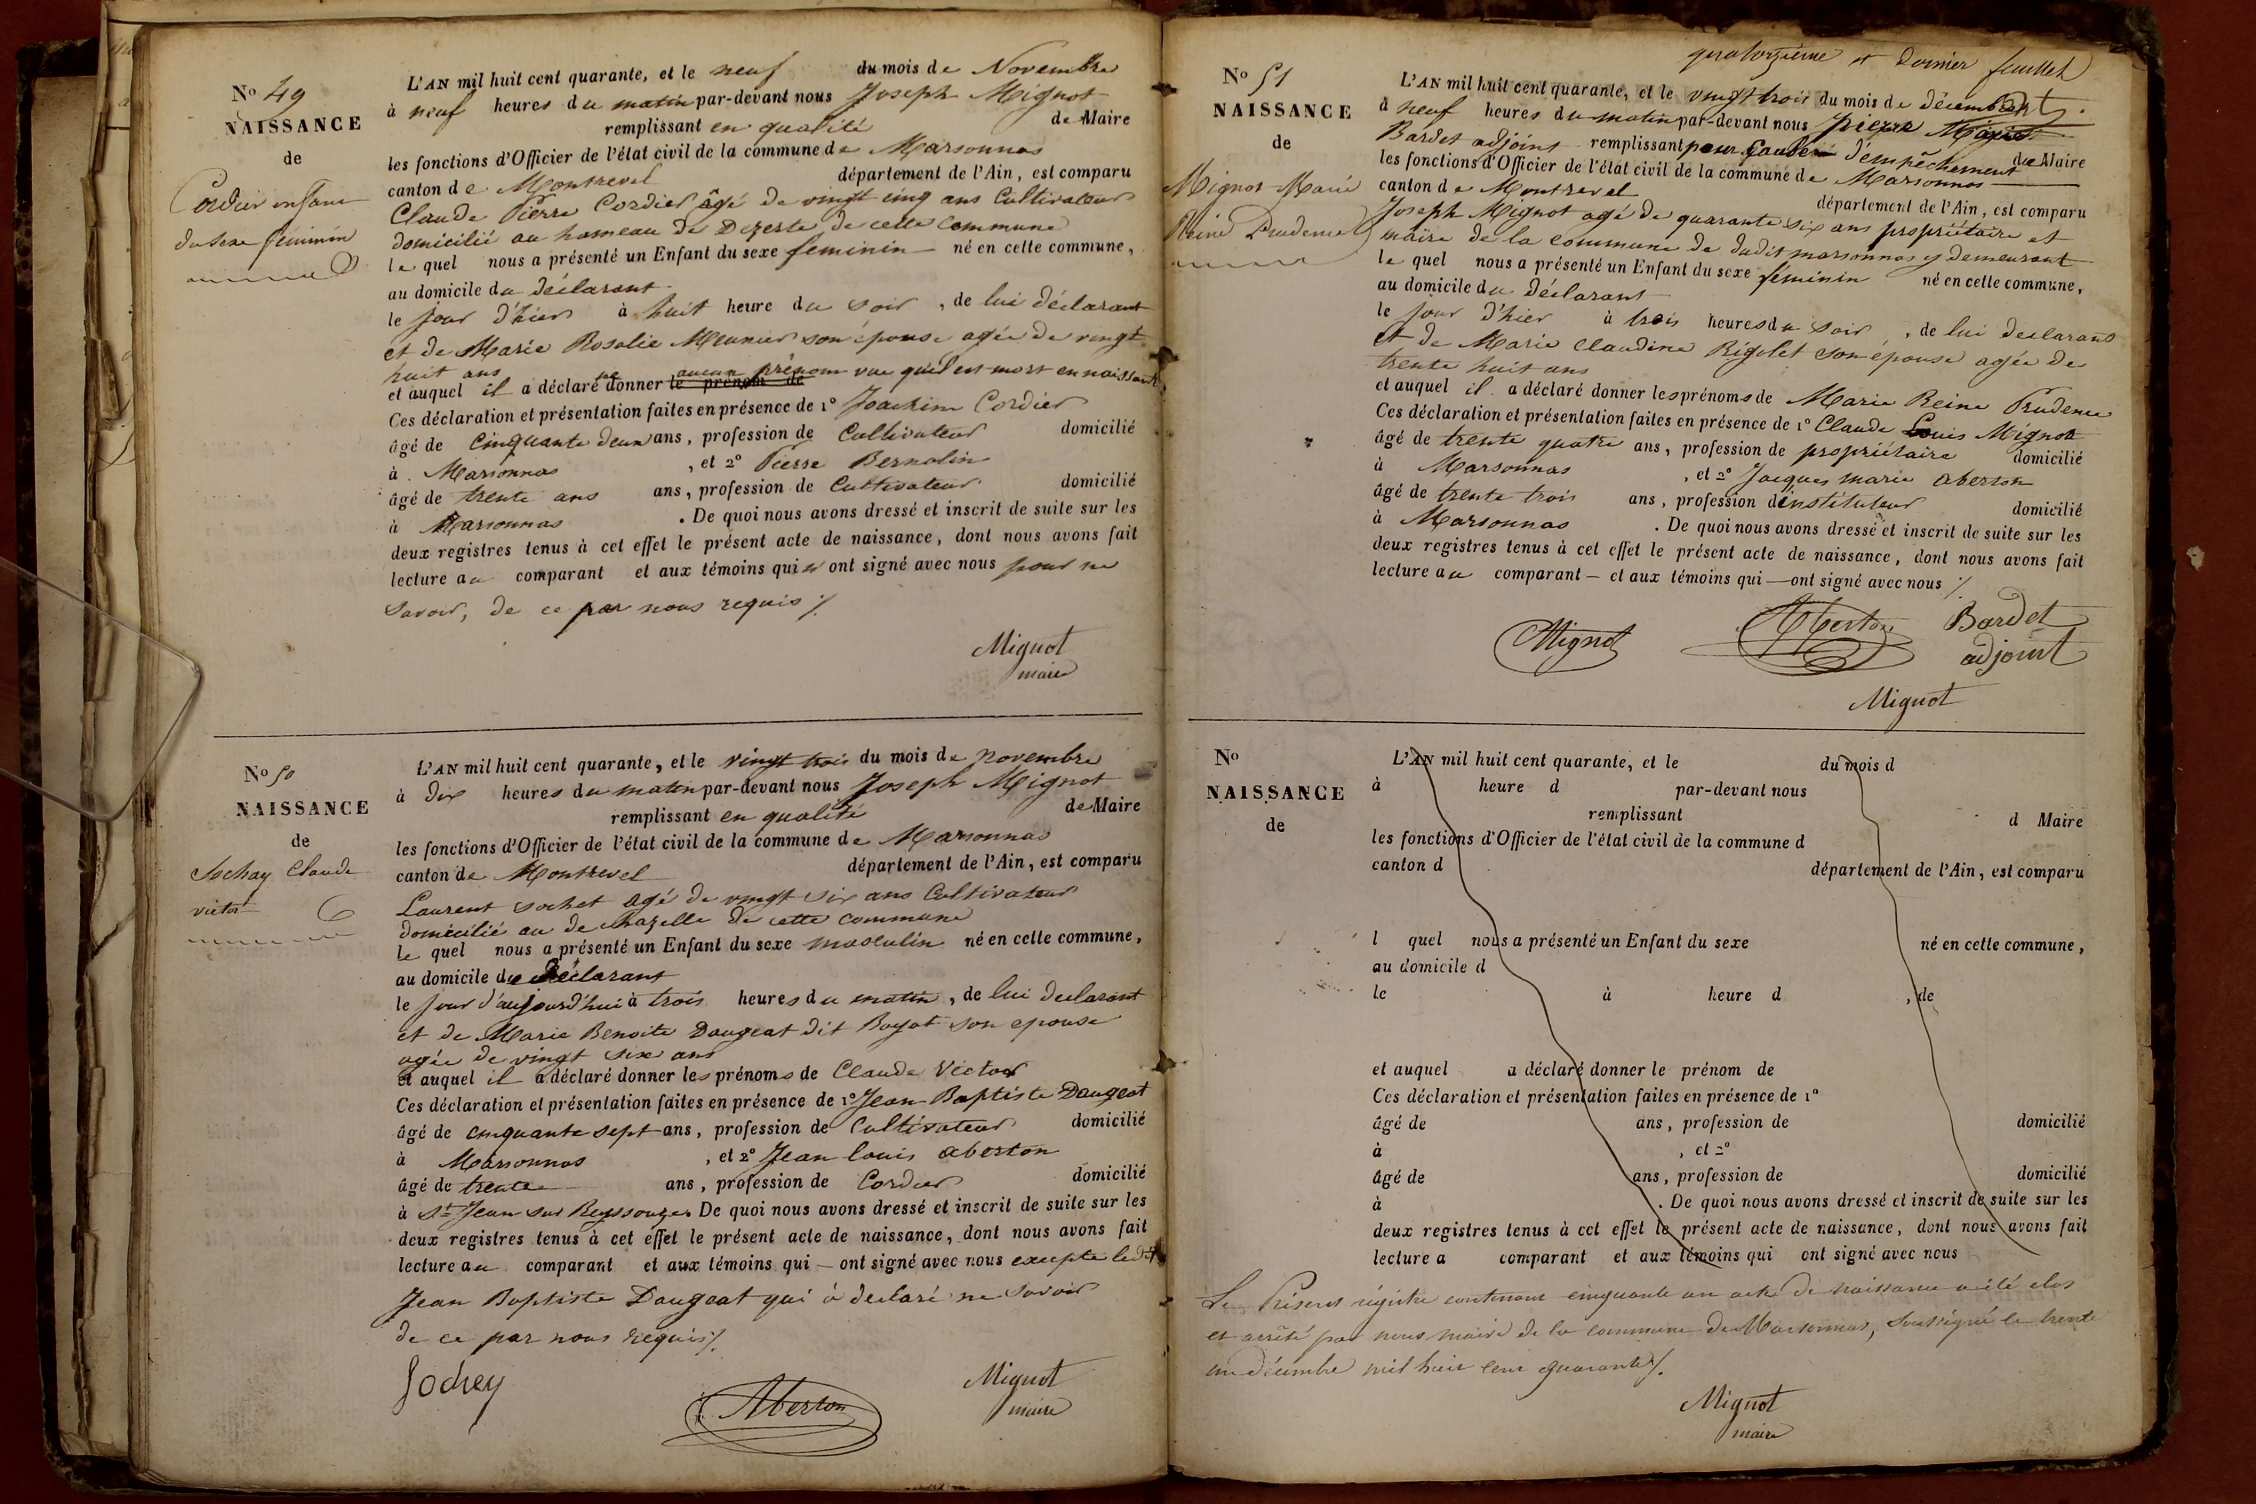 No 49
NAISSANCE
de
Cordier enfant
du sexe féminin
L'AN mil huit cent quarante, et le neuf du mois de Novembre
à neuf heures du matin par-devant nous Joseph Mignot
remplissant en qualité de Maire
les fonctions d'Officier de l'état civil de la commune de Marsonnas
canton de Montrevel département de l'Ain, est comparu
Claude Pierre Cordier âgé de vingt cinq ans Cultivateur
domicilié au hameau de Dezerte de cette commune
le quel nous a présenté un Enfant du sexe feminin né en cette commune,
au domicile du déclarant
le jour d'hier à huit heure du soir, de lui déclarant
et de Marie Rosalie Meunier son épouse agée de vingt
huit ans
et auquel il a déclaré ne donner le prénom de aucun prénom vue qu'il est mort en naissant
Ces déclaration et présentation faites en présence de 1º Joachim Cordier
âgé de cinquante deux ans, profession de Cultivateur domicilié
à Marsonnas, et 2º Pierre Bernolin
âgé de trente ans ans, profession de Cultivateur domicilié
à Marsonnas. De quoi nous avons dressé et inscrit de suite sur les
deux registres tenus à cet effet le présent acte de naissance, dont nous avons fait
lecture au comparant et aux témoins qui n'ont signé avec nous pour ne
savoir, de ce par nous requis ./.
Mignot
maire
No 50
NAISSANCE
de
Sochay Claude
victor
L'AN mil huit cent quarante, et le vingt trois du mois de novembre
à dix heures du matin par-devant nous Joseph Mignot
remplissant en qualité de Maire
les fonctions d'Officier de l'état civil de la commune de Marsonnas
canton de Montrevel département de l'Ain, est comparu
Laurent sochet agé de vingt six ans Cultivateur
domicilié au de chazelle de cette commune
le quel nous a présenté un Enfant du sexe masculin né en cette commune,
au domicile du déclarant
le jour d'aujourd'hui à trois heures du matin, de lui declarant
et de Marie Benoite Daugeat dit Boyat son epouse
agée de vingt six ans
et auquel il a déclaré donner les prénoms de Claude Victor
Ces déclaration et présentation faites en présence de 1º Jean Baptiste Daugeat
âgé de cinquante sept ans, profession de Cultivateur domicilié
à Marsonnas, et 2º Jean louis aberton
âgé de trente ans, profession de Cordier domicilié
à St Jean sur Reyssouze. De quoi nous avons dressé et inscrit de suite sur les
deux registres tenus à cet effet le présent acte de naissance, dont nous avons fait
lecture au comparant et aux témoins qui – ont signé avec nous excepté ledt
Jean Baptiste Daugeat qui à declaré ne savoir
de ce par nous requis ./.
Sochey
Aberton
Mignot
maire
quatorzième et dernier feuillet
No 51
NAISSANCE
de
Mignot Marie
Reine Prudence
L'AN mil huit cent quarante, et le vingt trois du mois de décembre
à neuf heures du matin par-devant nous pierre
Bardet adjoint remplissant pour cause d'empêchement du Maire
les fonctions d'Officier de l'état civil de la commune de Marsonnas
canton de Montrevel département de l'Ain, est comparu
Joseph Mignot agé de quarante six ans propriétaire et
maire de la commune de dudit marsonnas y demeurant
le quel nous a présenté un Enfant du sexe féminin né en cette commune,
au domicile du déclarant
le jour d'hier à trois heures du soir, de lui declarant
et de Marie claudine Rigolet son épouse agée de
trente huit ans
et auquel il a déclaré donner les prénoms de Marie Reine Prudence
Ces déclaration et présentation faites en présence de 1º Claude Louis Mignot
âgé de trente quatre ans, profession de propriétaire domicilié
à Marsonnas, et 2º Jacques marie aberton
âgé de trente trois ans, profession d'instituteur domicilié
à Marsonnas. De quoi nous avons dressé et inscrit de suite sur les
deux registres tenus à cet effet le présent acte de naissance, dont nous avons fait
lecture au comparant – et aux témoins qui – ont signé avec nous ./.
Mignot
Aberton
Bardet
adjoint
Mignot
No
NAISSANCE
de
L'AN mil huit cent quarante, et le du mois d
à heure d par-devant nous
remplissant d Maire
les fonctions d'Officier de l'état civil de la commune d
canton d département de l'Ain, est comparu
l quel nous a présenté un Enfant du sexe né en cette commune,
au domicile d
le à heure d, de
et auquel a déclaré donner le prénom de
Ces déclaration et présentation faites en présence de 1º
âgé de ans, profession de domicilié
à, et 2º
âgé de ans, profession de domicilié
à. De quoi nous avons dressé et inscrit de suite sur les
deux registres tenus à cet effet le présent acte de naissance, dont nous avons fait
lecture a comparant et aux témoins qui ont signé avec nous
Le Présent régistre contenant cinquante un acte de naissance a été clos
et arrêté par nous maire de la commune de Marsonnas, soussigné le trente
un décembre mil huit cent quarante ./.
Mignot
maire